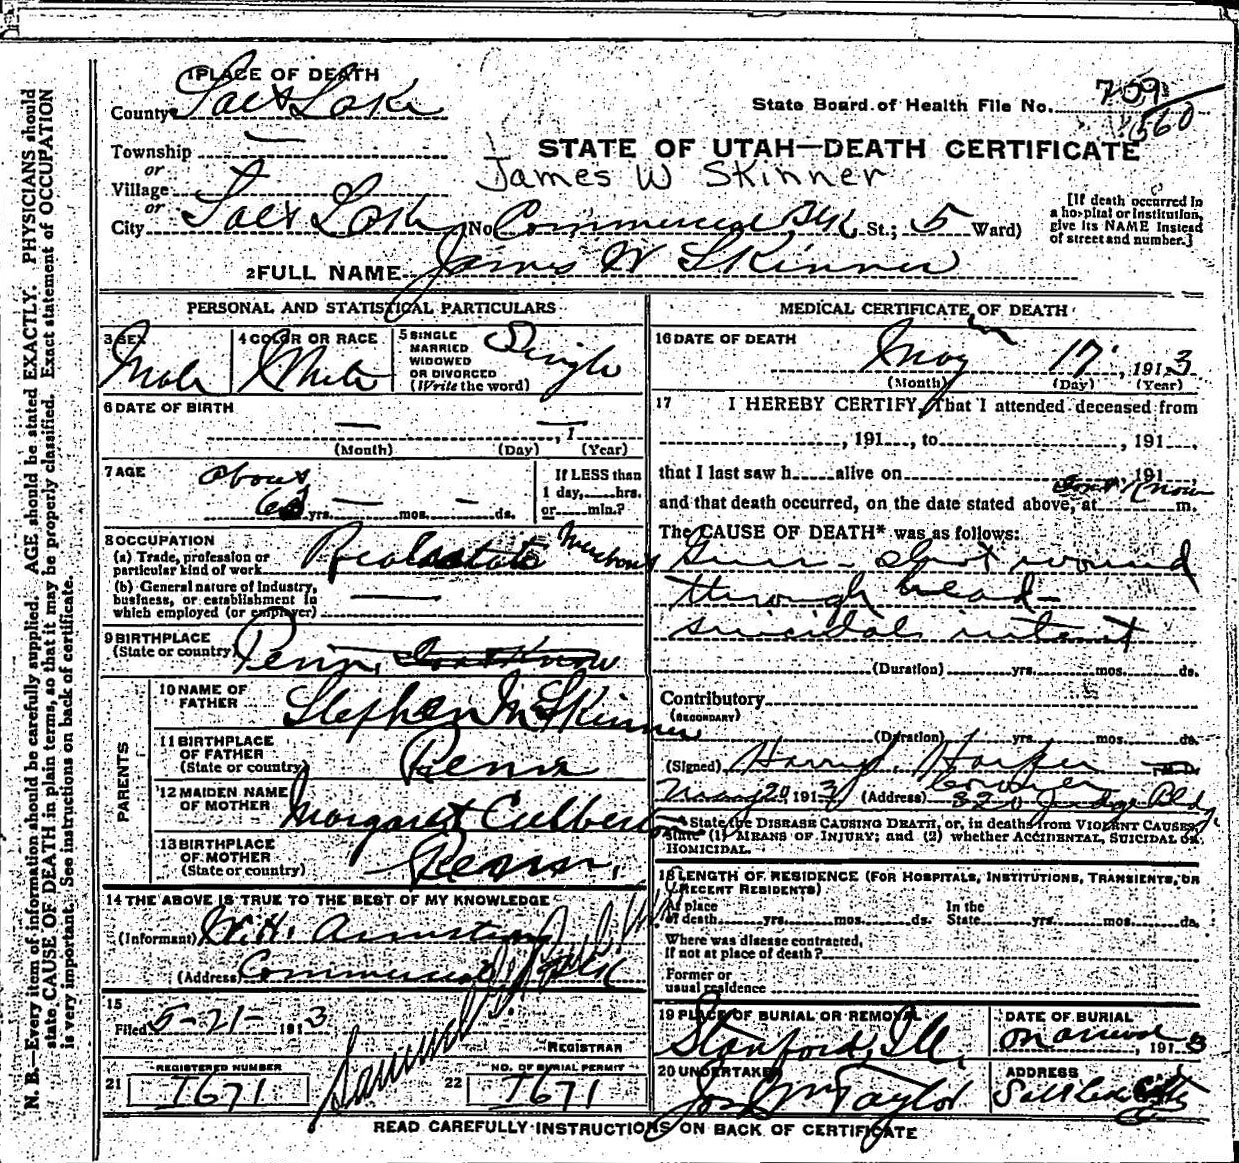 N. B.—Every item of information should be carefully supplied. AGE should be stated EXACTLY. PHYSICIANS should
state CAUSE OF DEATH in plain terms, so that it may be properly classified. Exact statement of OCCUPATION
is very important. See instructions on back of certificate.
1 PLACE OF DEATH
County Salt Lake
State Board of Health File No. 709
560
Township —
or
Village
or
STATE OF UTAH—DEATH CERTIFICATE
James W Skinner
City Salt Lake (No. Commercial Blk St.; 5 Ward)
[If death occurred in
a hospital or institution,
give its NAME instead
of street and number.]
2 FULL NAME James W Skinner
PERSONAL AND STATISTICAL PARTICULARS
3 SEX
Male
4 COLOR OR RACE
White
5 SINGLE
MARRIED
WIDOWED
OR DIVORCED
(Write the word)
Single
6 DATE OF BIRTH
— — , 1
(Month) (Day) (Year)
7 AGE
about
yrs. — mos. — ds.
If LESS than
1 day, hrs.
or min.?
8 OCCUPATION
(a) Trade, profession or
particular kind of work Real estate
(b) General nature of industry,
business, or establishment in
which employed (or employer) —
9 BIRTHPLACE
(State or country) Penn. Dont Know
PARENTS
10 NAME OF
FATHER Stephen M Skinner
11 BIRTHPLACE
OF FATHER
(State or country) Penn
12 MAIDEN NAME
OF MOTHER Margaret Culbertson
13 BIRTHPLACE
OF MOTHER
(State or country) Penn.
14 THE ABOVE IS TRUE TO THE BEST OF MY KNOWLEDGE
(Informant) W.H. Armstrong
(Address) Commercial Blk
15
Filed 5-21- 1913
REGISTRAR
21 REGISTERED NUMBER
I671
22 NO. OF BURIAL PERMIT
I671
MEDICAL CERTIFICATE OF DEATH
16 DATE OF DEATH
May 17, 1913
(Month) (Day) (Year)
17 I HEREBY CERTIFY, That I attended deceased from
, 191 , to , 191 ,
that I last saw h alive on , 191 ,
Dont Know
and that death occurred, on the date stated above, at m.
The CAUSE OF DEATH* was as follows:
Gun-shot wound
through head-
suicidal intent
(Duration) yrs. mos. ds.
Contributory
(SECONDARY)
(Duration) yrs. mos. ds.
(Signed) Harry Harper M.D.
Coroner
May 20 1913 (Address) 320 Judge Bldg
*State the DISEASE CAUSING DEATH, or, in deaths from VIOLENT CAUSES,
state (1) MEANS OF INJURY; and (2) whether ACCIDENTAL, SUICIDAL OR
HOMICIDAL.
18 LENGTH OF RESIDENCE (FOR HOSPITALS, INSTITUTIONS, TRANSIENTS, OR
RECENT RESIDENTS)
At place
of death yrs. mos. ds.
In the
State yrs. mos. ds.
Where was disease contracted,
if not at place of death?
Former or
usual residence
19 PLACE OF BURIAL OR REMOVAL
Stanford, Ill.
DATE OF BURIAL
on arrival , 1913
20 UNDERTAKER
Jos Wm Taylor
ADDRESS
Salt Lake City
READ CAREFULLY INSTRUCTIONS ON BACK OF CERTIFICATE